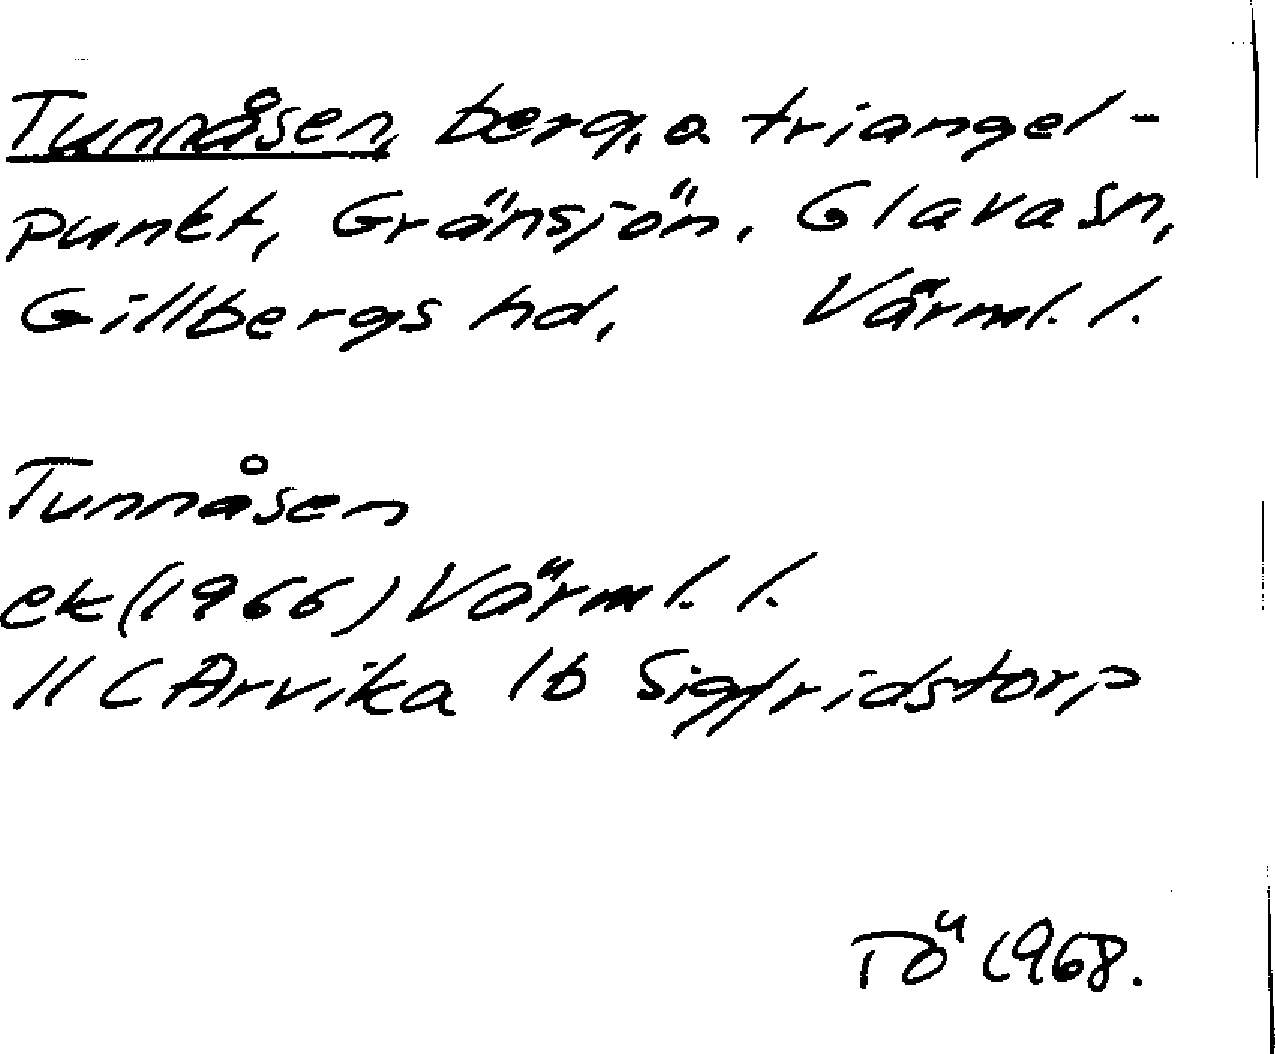 Tunnåsen, berg, o. triangel-
punkt, Gränsjön, Glava sn,
Gillbergs hd, Värml. l.
Tunnåsen
ek (1966) Värml. l.
11 C Arvika 1b Sigfridstorp
TÖ 1968.